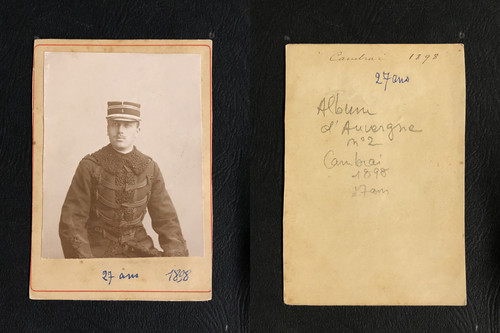 27 ans 1898
Cambrai 1898
27 ans
Album
d'Auvergne
n°2
Cambrai
1898
27 ans